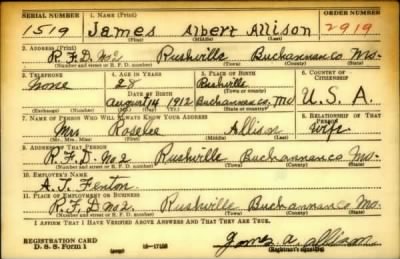 SERIAL NUMBER 1. NAME (Print) ORDER NUMBER
1519 James Albert Allison 2919
(First) (Middle) (Last)
2. ADDRESS (Print)
R.F.D. No 2 Rushville Buchannan co Mo.
(Number and street or R. F. D. number) (Town) (County) (State)
3. TELEPHONE 4. AGE IN YEARS 5. PLACE OF BIRTH 6. COUNTRY OF CITIZENSHIP
none 28 Rushville
DATE OF BIRTH U.S.A.
August 14 1912 Buchannan co, Mo
(Exchange) (Number) (Mo.) (Day) (Yr.) (Town or county) (State or country)
7. NAME OF PERSON WHO WILL ALWAYS KNOW YOUR ADDRESS 8. RELATIONSHIP OF THAT PERSON
Mrs Allison wife
(Mr., Mrs., Miss) (First) (Middle) (Last)
9. ADDRESS OF THAT PERSON
R.F.D. No 2 Rushville Buchannan co Mo.
(Number and street or R. F. D. number) (Town) (County) (State)
10. EMPLOYER'S NAME
A. J. Fenton
11. PLACE OF EMPLOYMENT OR BUSINESS
R.F.D no 2 Rushville Buchannan co Mo.
(Number and street or R. F. D. number) (Town) (County) (State)
I AFFIRM THAT I HAVE VERIFIED ABOVE ANSWERS AND THAT THEY ARE TRUE.
REGISTRATION CARD
D. S. S. Form 1 (over) James A. Allison
(Registrant's signature)